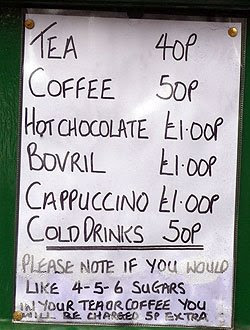 TEA 40P
COFFEE 50P
HOT CHOCOLATE £1.00P
BOVRIL £1.00P
CAPPUCCINO £1.00P
COLD DRINKS 50P
PLEASE NOTE IF YOU WOULD
LIKE 4-5-6 SUGARS
IN YOUR TEA OR COFFEE YOU
WILL BE CHARGED 5P EXTRA